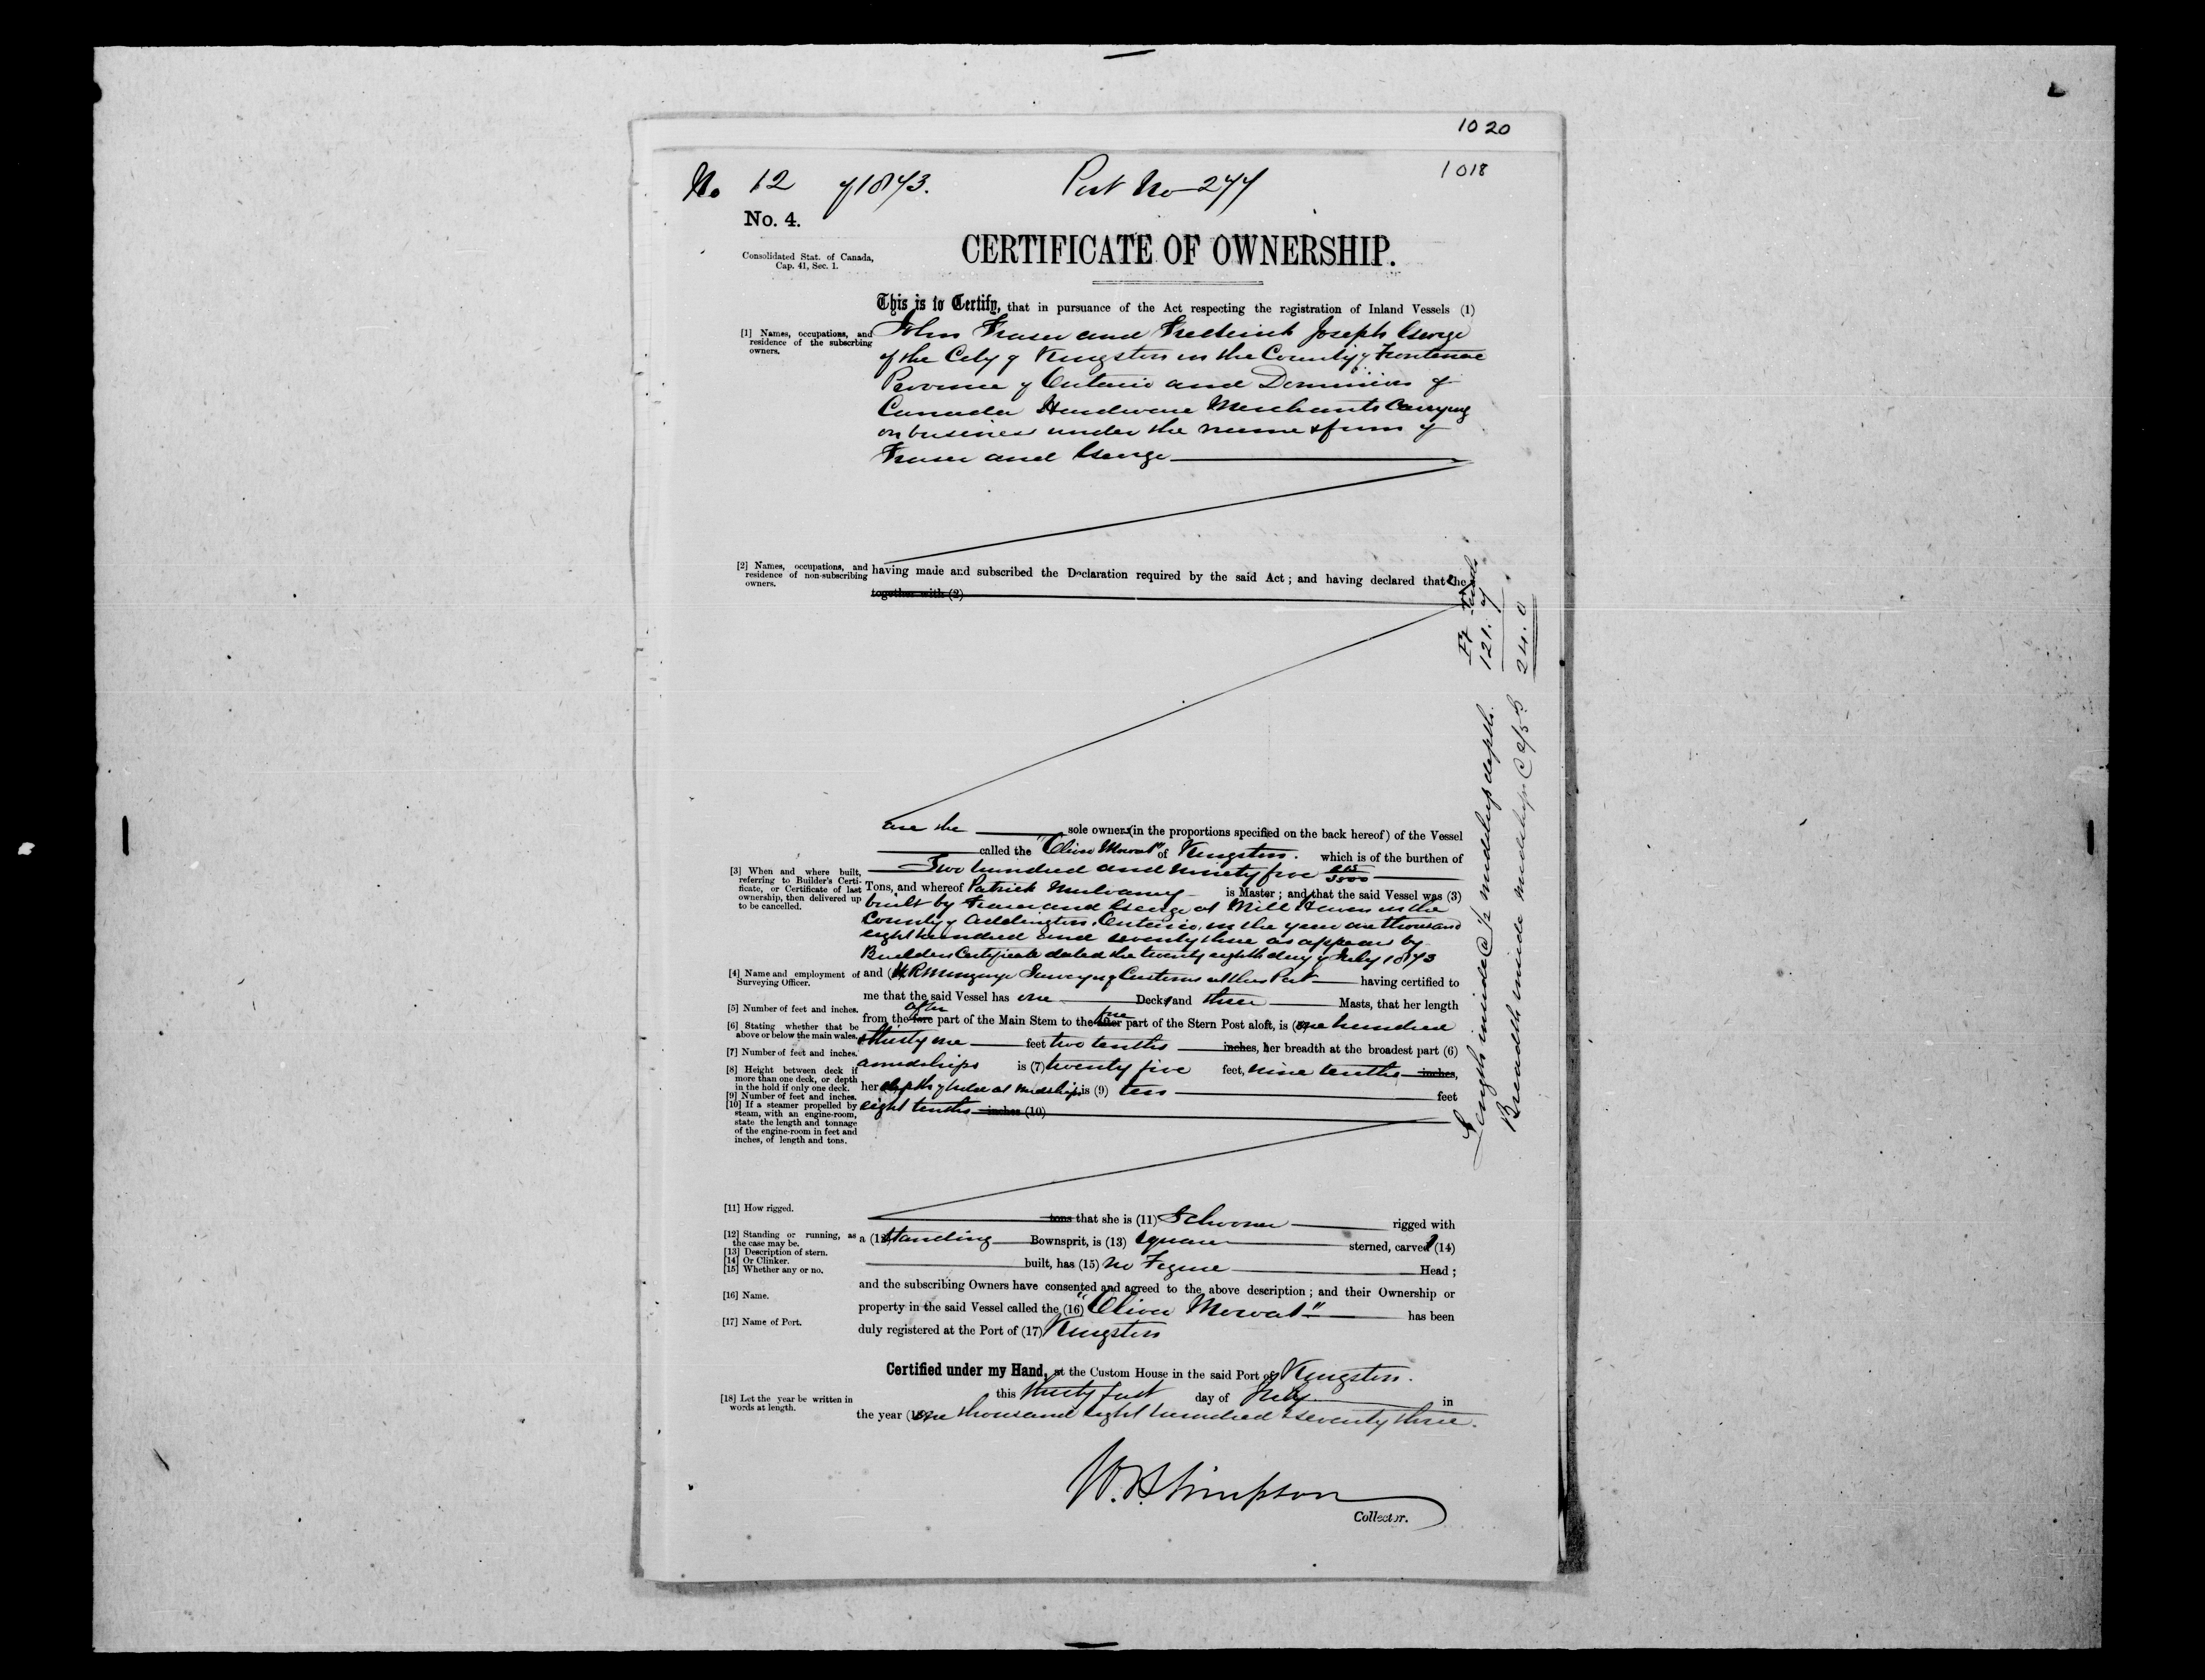 1020
1018
No 12 of 1873. Port No 277
No. 4.
CERTIFICATE OF OWNERSHIP.
Consolidated Stat. of Canada,
Cap. 41, Sec. 1.
This is to Certify, that in pursuance of the Act respecting the registration of Inland Vessels (1)
[1] Names, occupations, and
residence of the subscrbing
owners.
John Fraser and Frederick Joseph George
of the City of Kingston in the County of Frontenac
Province of Ontario and Dominion of
Canada Hardware Merchants Carrying
on business under the name & firm of
Fraser and George
[2] Names, occupations, and
residence of non-subscribing
owners.
having made and subscribed the Declaration required by the said Act ; and having declared that the
together with (2)
are the sole owners (in the proportions specified on the back hereof) of the Vessel
called the "Oliver Mowat" of Kingston. which is of the burthen of
Two hundred and ninety five
[3] When and where built,
referring to Builder's Certi-
ficate, or Certificate of last
ownership, then delivered up
to be cancelled.
Tons, and whereof Patrick Mulvaney is Master ; and that the said Vessel was (3)
built by Fraser and George at Mill Haven in the
County of Addington, Ontario, in the year one thousand
eight hundred and seventy three as appears by
Builders Certificate dated the twenty eighth day of July 1873
[4] Name and employment of
Surveying Officer.
and (4) Surveyor of Customs at this Port having certified to
me that the said Vessel has one Deck and three Masts, that her length
[5] Number of feet and inches.
after fore
from the fore part of the Main Stem to the after part of the Stern Post aloft, is (5) one hundred
[6] Stating whether that be
above or below the main wales.
& thirty one feet two tenths inches, her breadth at the broadest part (6)
[7] Number of feet and inches.
amidships is (7) twenty five feet, nine tenths inches,
[8] Height between deck if
more than one deck, or depth
in the hold if only one deck.
her depth of hold at Midships is (9) ten feet
[9] Number of feet and inches.
[10] If a steamer propelled by
steam, with an engine-room,
state the length and tonnage
of the engine-room in feet and
inches, of length and tons.
eight tenths inches (10)
[11] How rigged.
tons that she is (11) Schooner rigged with
[12] Standing or running, as
the case may be.
a (12) Standing Bownsprit, is (13) Square sterned, carvel (14)
[13] Description of stern.
[14] Or Clinker.
[15] Whether any or no.
built, has (15) no Figure Head ;
and the subscribing Owners have consented and agreed to the above description ; and their Ownership or
[16] Name.
property in the said Vessel called the (16) "Oliver Mowat" has been
[17] Name of Port.
duly registered at the Port of (17) Kingston
Certified under my Hand, at the Custom House in the said Port of Kingston.
this thirty first day of July in
[18] Let the year be written in
words at length.
the year (18) one thousand eight hundred & seventy three.
W. B. Simpson
Collector.
Ft Tenths
Length inside @ 1/2 midship depth. 121. 7
Breadth inside midships @ 24. 0